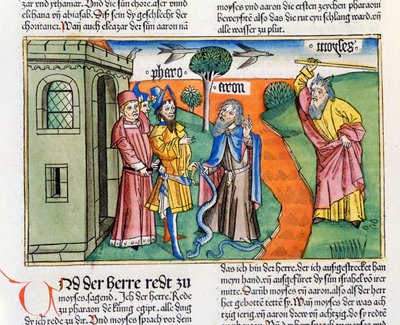 zar vnd ythamar. Vnd die sün chore. aser vnd
elkana vñ abiasab. Diß sein dy geschlecht der
choritanet. Wañ auch eleazar der sun aaron nã
moyses vnd aaron die ersten zeychen pharaoni
beweyßte als das die rut eyn schlang ward. vñ
alle wasser zu plut.
pharo
aron
moyses
Vnd der herre redt zu
moyses. sagend. Ich der herre. Rede
zu pharaon dē künig egipt. alle ding
dy ich rede zu dir. Vnd moyses sprach vor dem
das ich bin der herre. der ich außgestrecket han
meyn hand. vñ außgefürt dy sün israhel vō irer
mitte. Darüb moyses vñ aaron. also als der herre
het gebottē tettē sy. Wañ moyses der was ach
czig ierig. vñ aaron drew vñ achtzig. do sy redtē